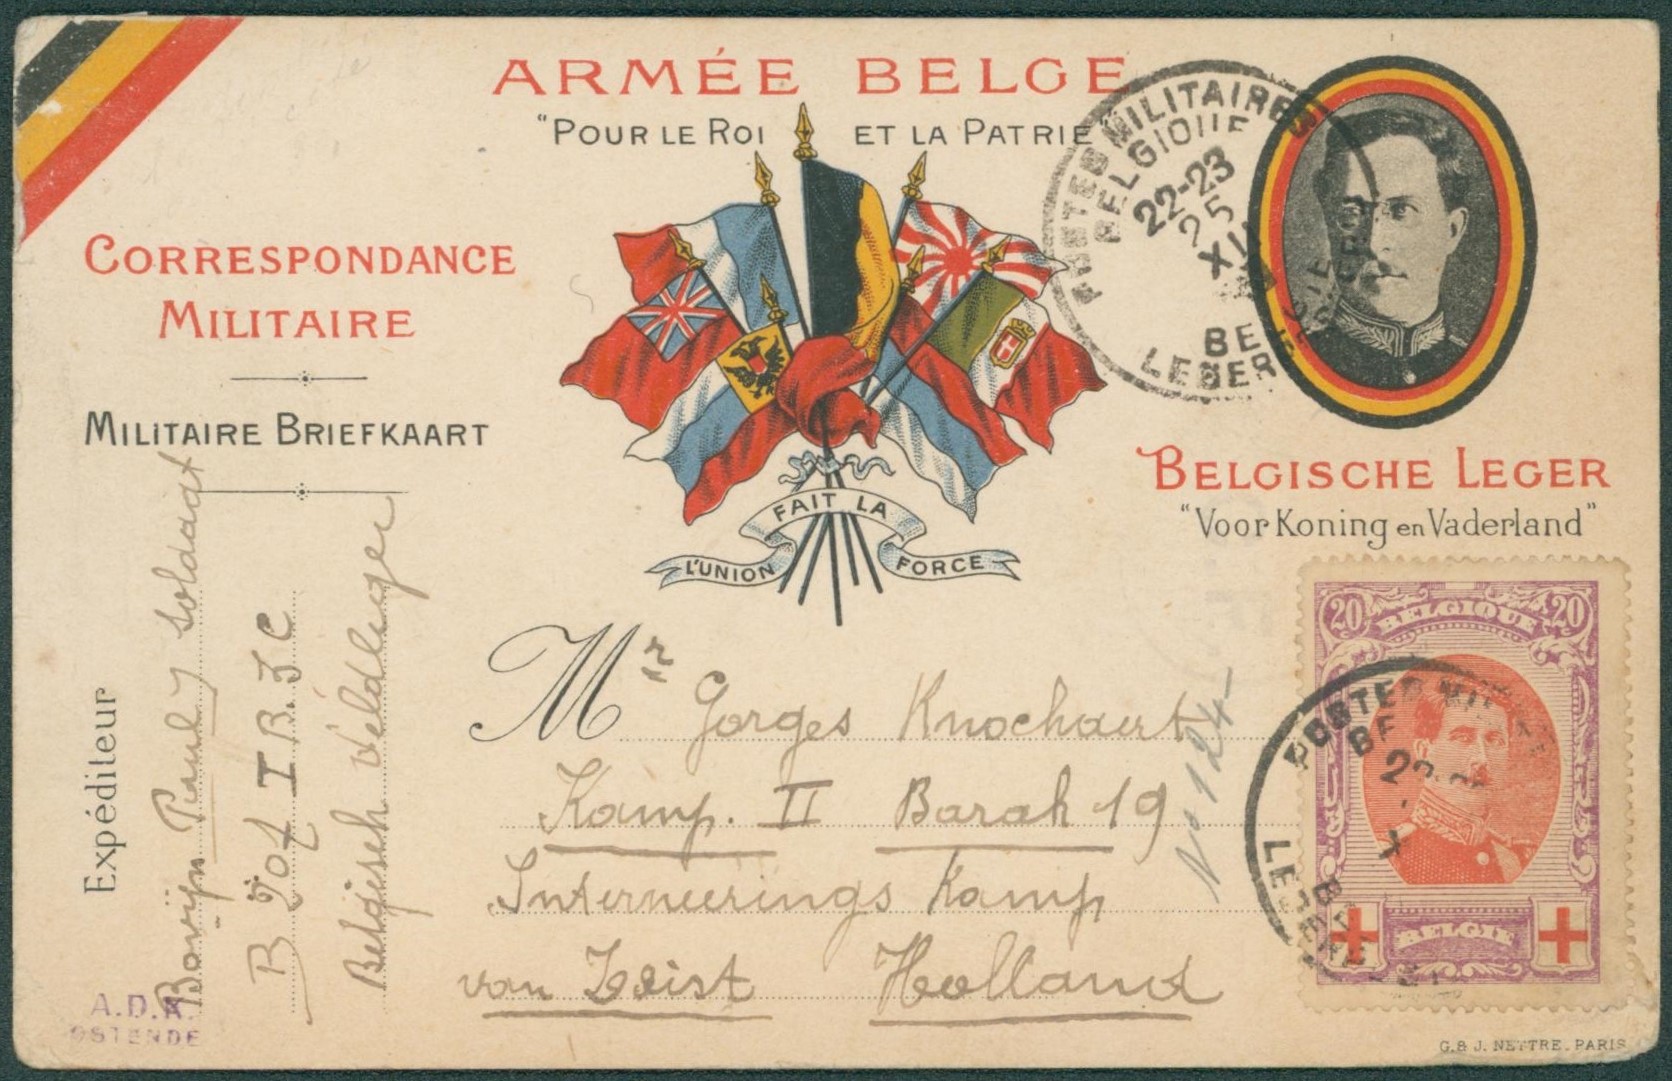 ARMÉE BELGE
"POUR LE ROI ET LA PATRIE"
CORRESPONDANCE
MILITAIRE
MILITAIRE BRIEFKAART
L'UNION FAIT LA FORCE
POSTES MILITAIRES
BELGIQUE
22-23
25
XII
BELGISCHE LEGER
"Voor Koning en Vaderland"
Expéditeur
Bovijn Paul soldaat
B 207 I B.3 C
Belgisch Veldleger
Mr Gorges Knochaert
Kamp. II Barak 19
Interneerings Kamp
van Zeist Holland
No 124
20 BELGIQUE 20
BELGIE
A.D.K.
OSTENDE
G. & J. NETTRE. PARIS